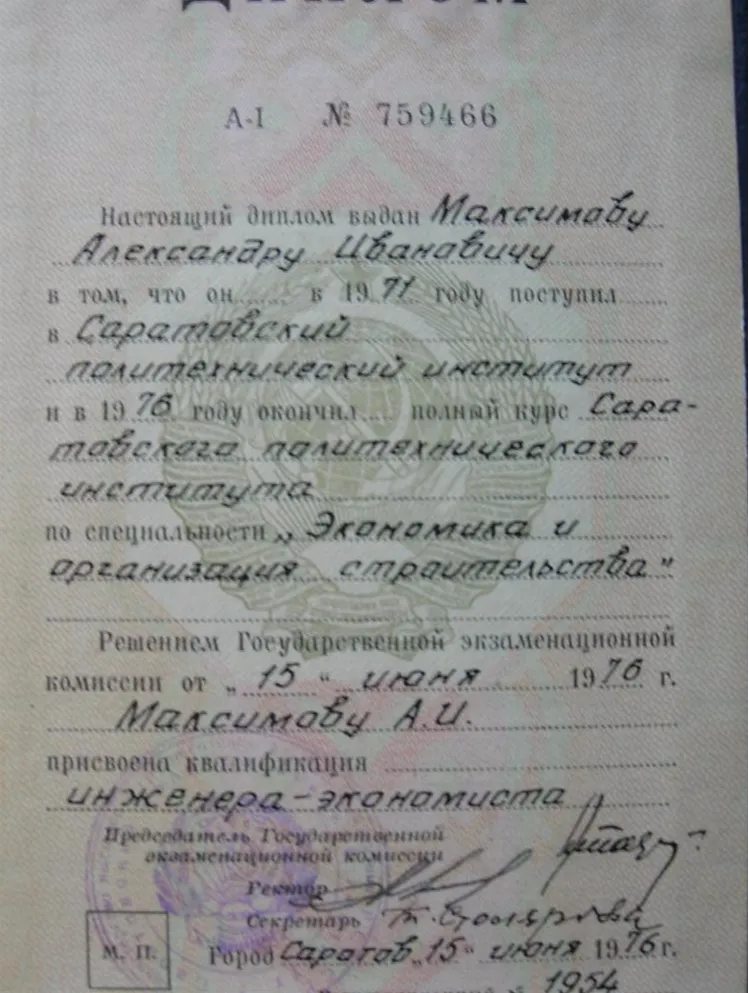 ДИПЛОМ
А-I № 759466
Настоящий диплом выдан Максимову
Александру Ивановичу
в том, что он в 1971 году поступил
в Саратовский
политехнический институт
и в 1976 году окончил полный курс Сара-
товского политехнического
института
по специальности „Экономика и
организация строительства"
Решением Государственной экзаменационной
комиссии от „15" июня 1976 г.
Максимову А.И.
присвоена квалификация
инженера-экономиста
Председатель Государственной
экзаменационной комиссии
Ректор
Секретарь Т. Столярова
М. П.
Город Саратов „15" июня 1976 г.
1954